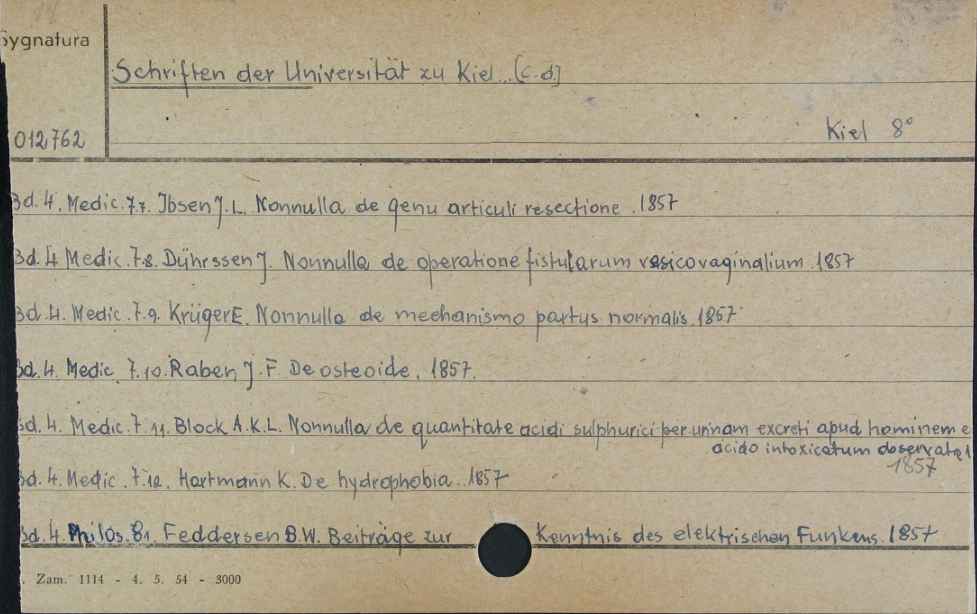 Sygnatura
Schriften der Universität zu Kiel...[c.d]
012762
Kiel 8°
Bd. 4. Medic. 7.7. Ibsen J.L. Nonnulla de genu articuli resectione. 1857
Bd. 4 Medic. 7.8. Dührssen J. Nonnulla de operatione fistularum vesicovaginalium. 1857
Bd. 4. Medic. 7.9. Krüger E. Nonnulla de mechanismo partus normalis. 1857
Bd. 4. Medic. 7.10. Raben, J. F. De osteoide. 1857.
Bd. 4. Medic. 7.11. Block A.K.L. Nonnulla de quantitate acidi sulphurici per urinam excreti apud hominem e
acido intoxicatum
1857
Bd. 4. Medic. 7.12. Hartmann K. De hydrophobia. 1857
Bd. 4. Philos. 81. Feddersen B.W. Beiträge zur Kenntnis des elektrischen Funkens. 1857
. Zam. 1114 - 4. 5. 54 - 3000